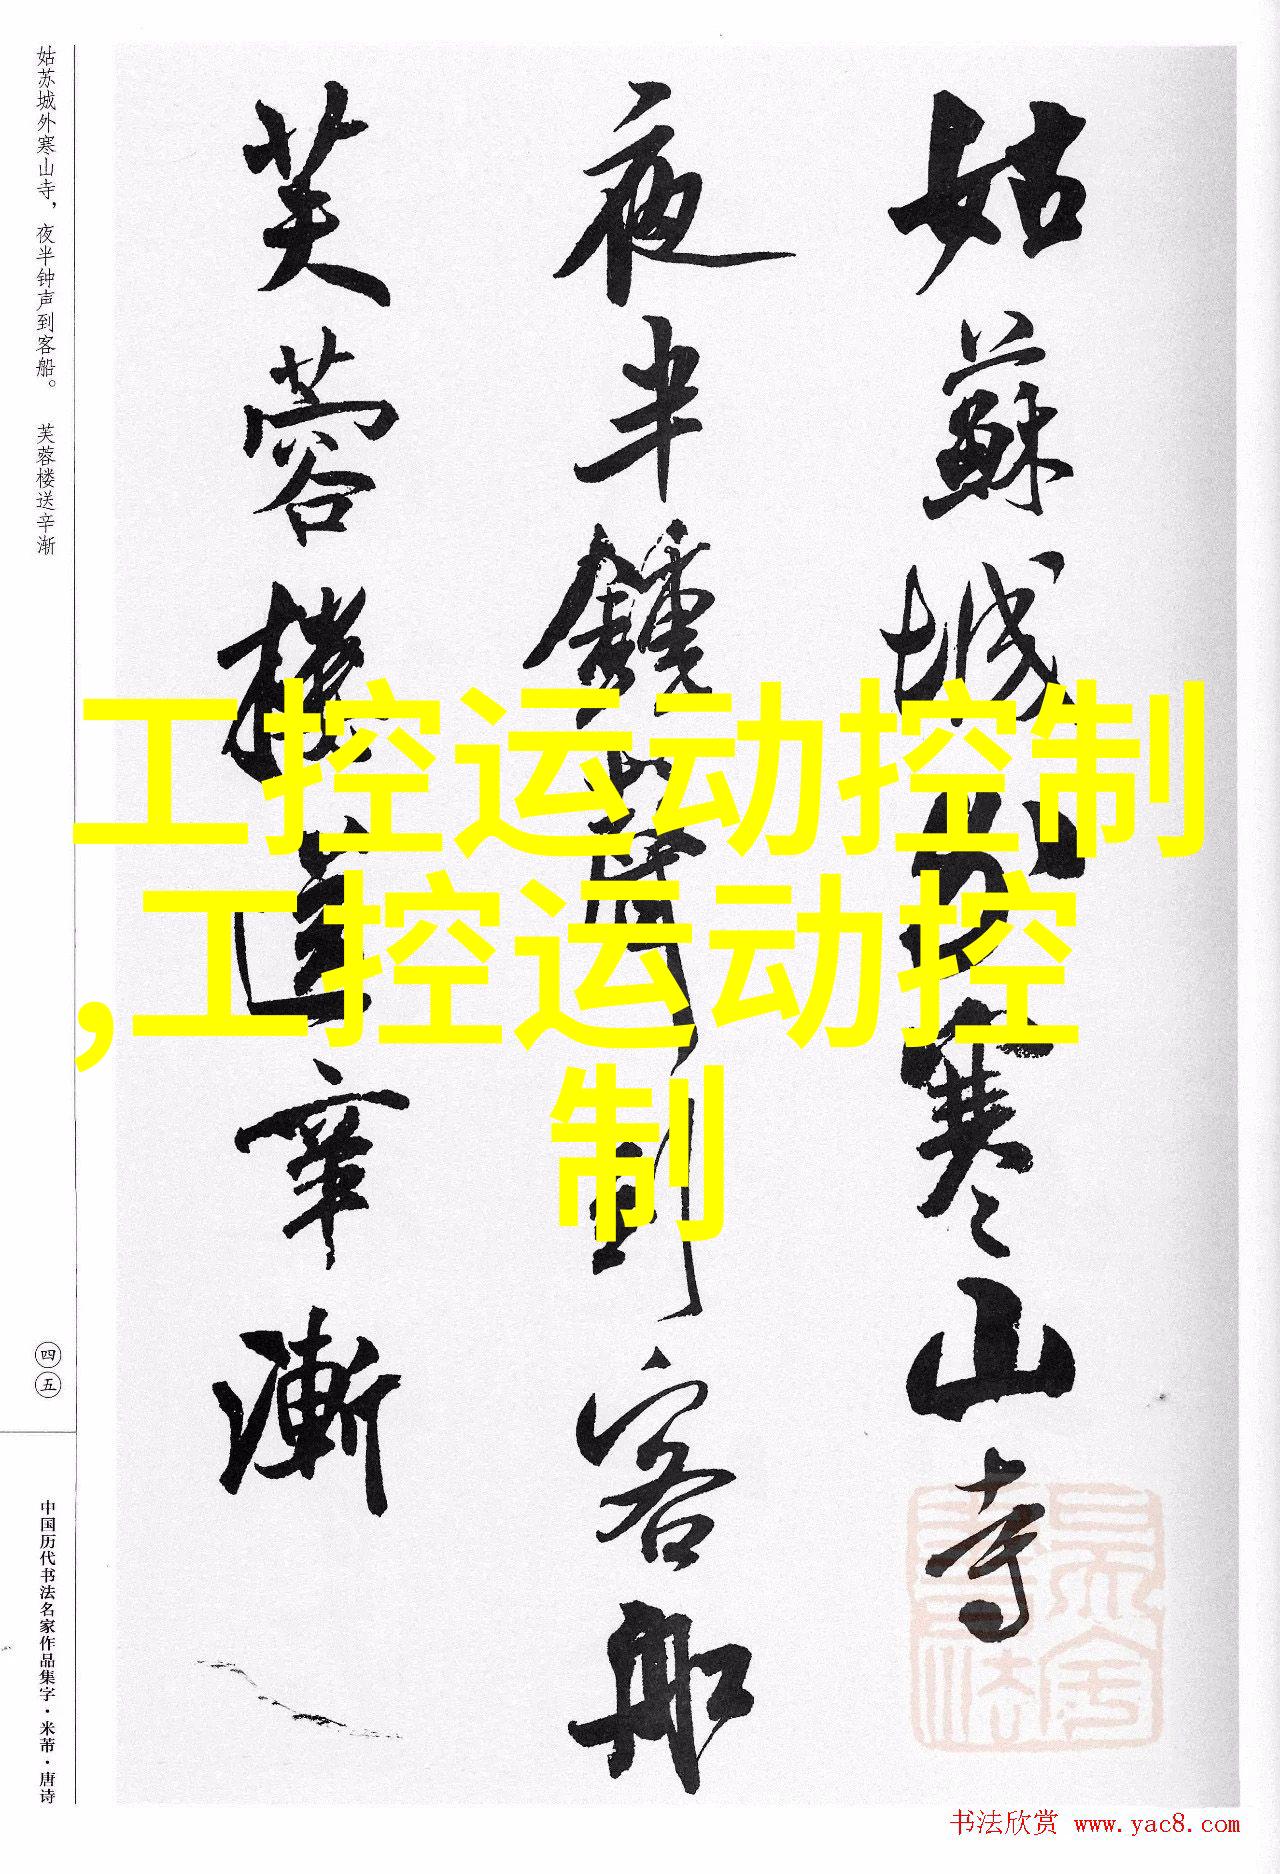 姑蘇城外寒山寺
夜半鐘聲到客船
芙蓉樓送辛漸
工控运动控制
,工控运动控
制
姑苏城外寒山寺，夜半钟声到客船。 芙蓉楼送辛渐
四五
中国历代书法名家作品集字·米芾·唐诗
书法欣赏 www.yac8.com